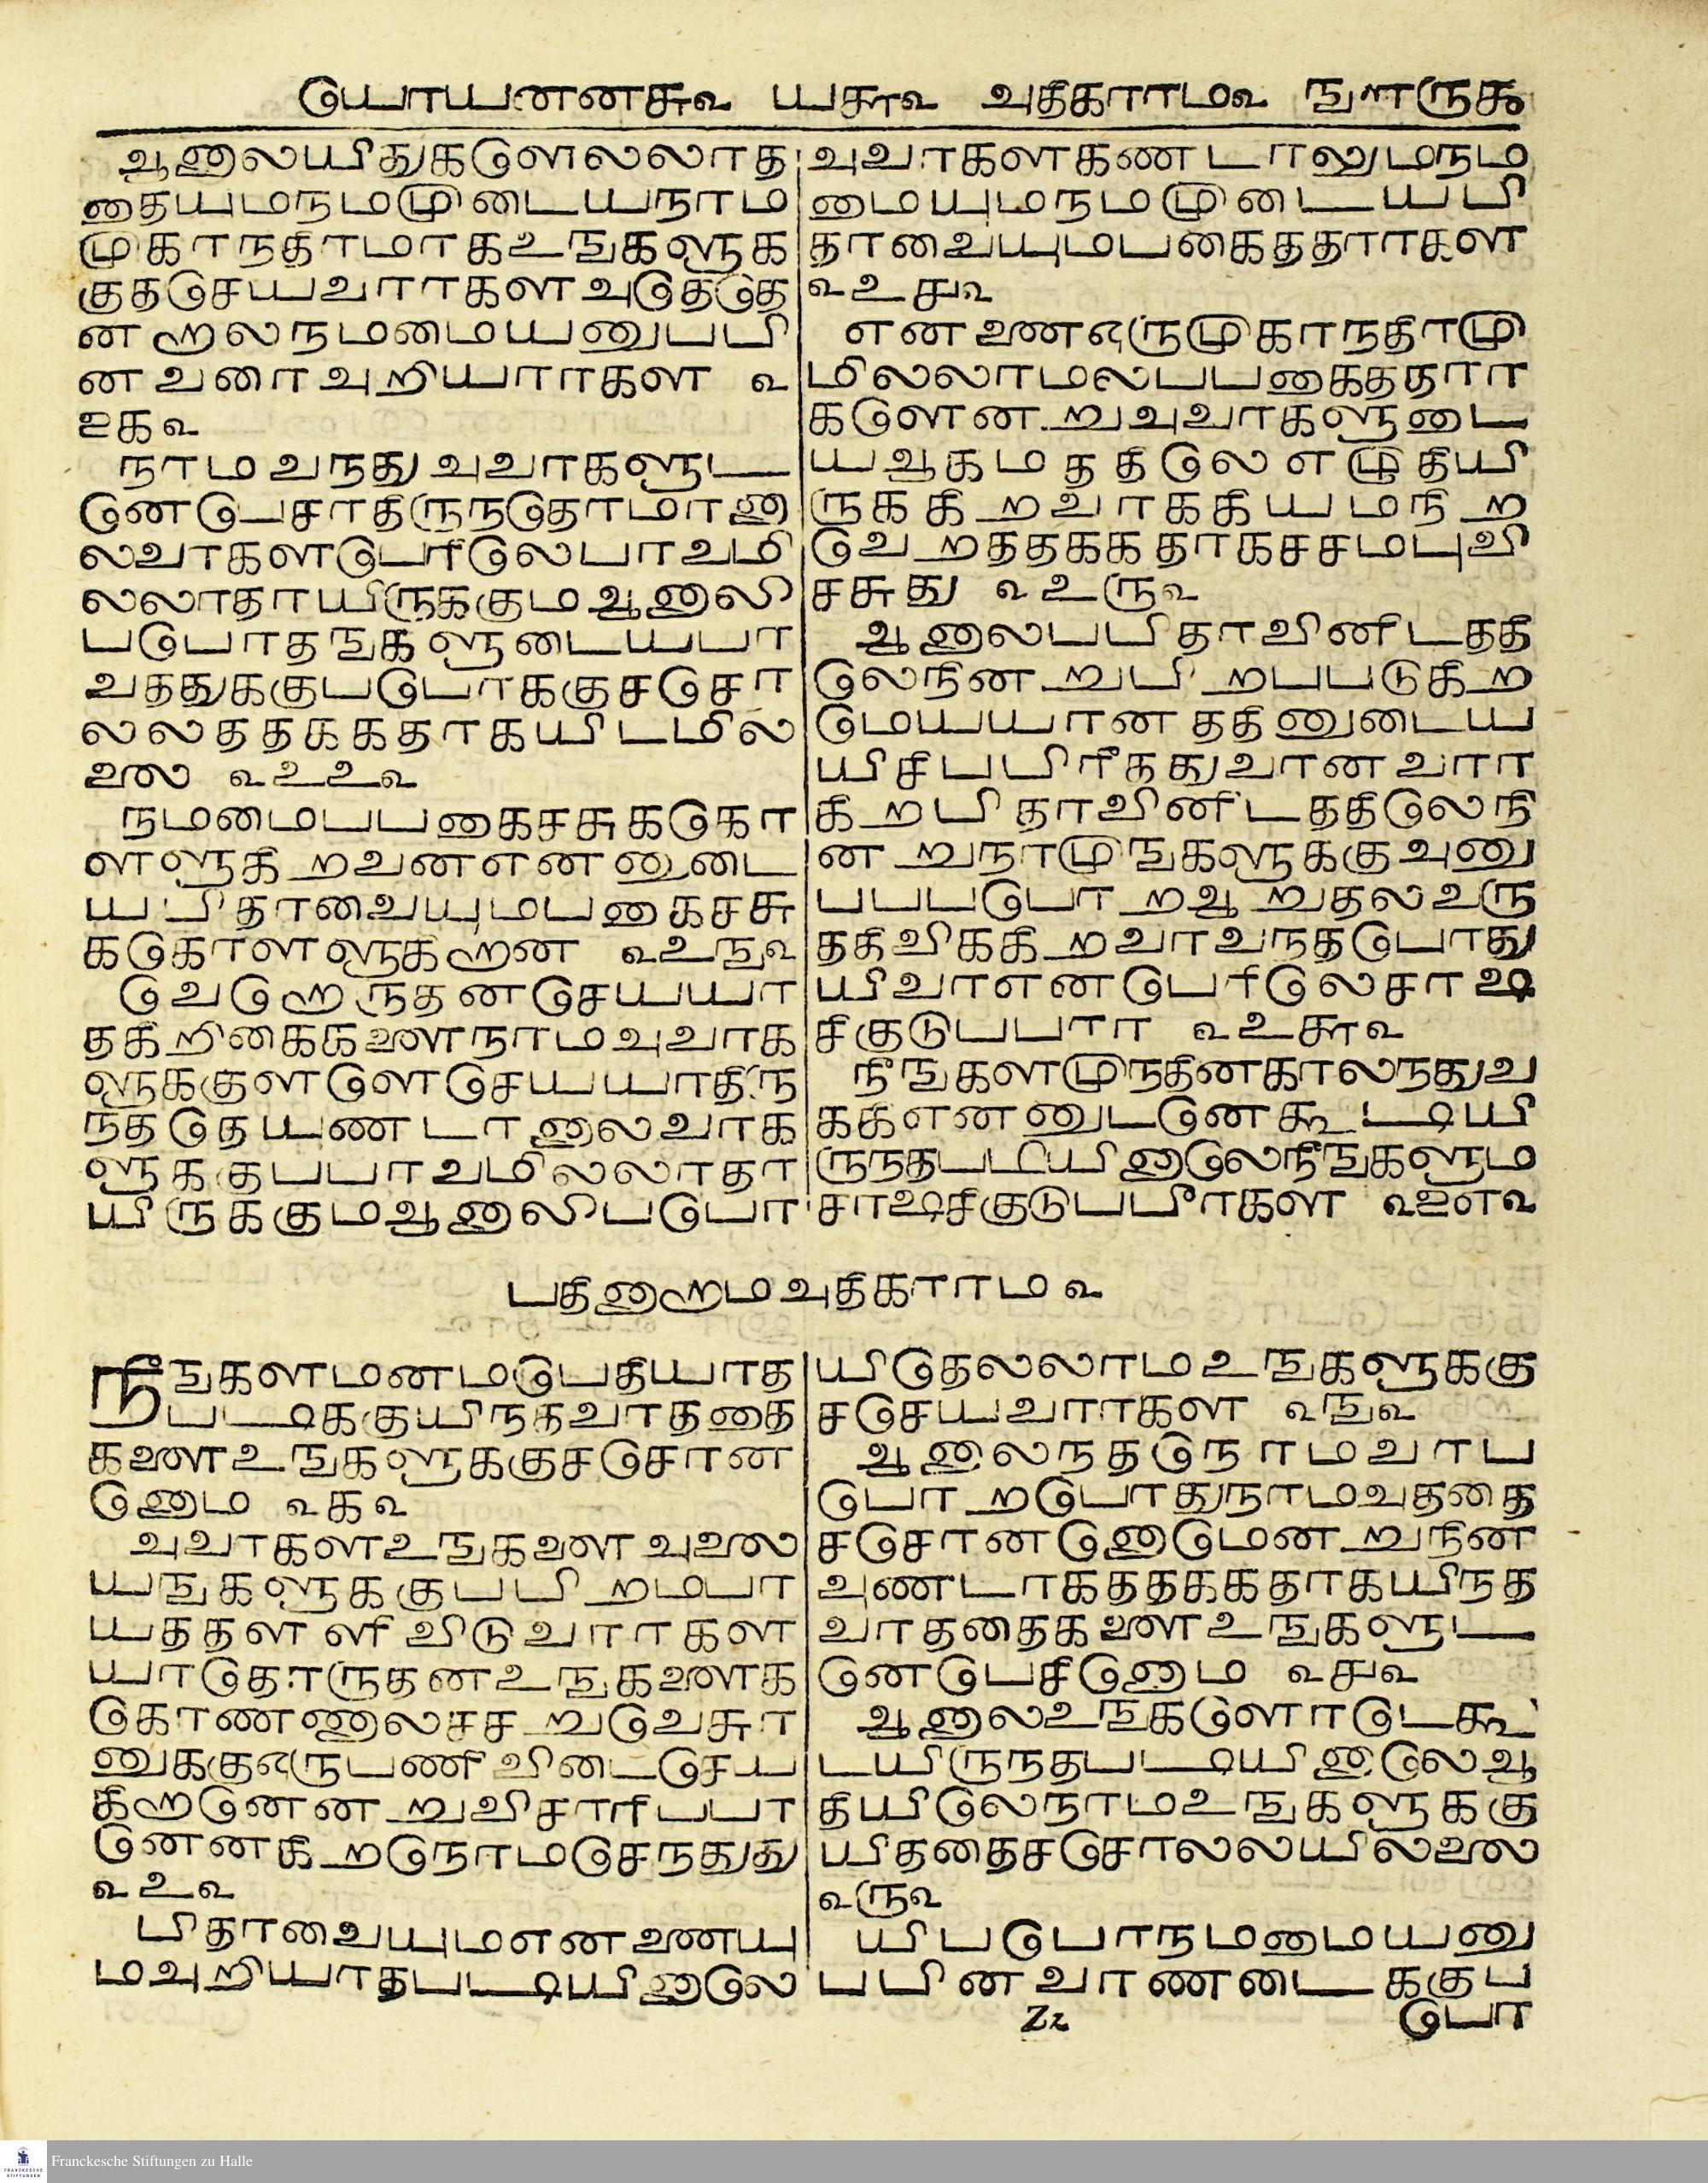 யோயனனசு௨ யசா௨ அதிகாாம௨ ஙளருக
ஆனாலயிதுகளேலலாத
தையுமநமமுடையநாம
முகாநதிாமாகஉஙகளுக
குதசேயவாாகளஅதேதே
னறாலநமமையனுபபி
னவரைஅறியாாகள ௨
௨க௨
நாமவநதுஅவாகளுட
னேபேசாதிருநதோமானா
லவாகளபேரிலேபாவமி
லலாதாயிருககுமஆனாலி
பபோதஙகளுடையபா
வததுககுபபோககுசசொ
லலததககதாகயிடமில
லை ௨௨௨௨
நமமைபபகைசசுககொ
ளளுகிறவனஎனனுடை
யபிதாவையுமபகைசசு
ககொளளுகிறான ௨௨ங௨
வேறொருதனசேயயா
தகிறிகைகளைநாமஅவாக
ளுககுளளேசேயயாதிரு
நததேயுணடானாலவாக
ளுககுபபாவமிலலாதா
யிருககுமஆனாலிபபோ
அவாகளகணடாலுமநம
மையுமநமமுடையபி
தாவையுமபகைததாாகள
௨௨சு௨
எனனைஒருமுகாநதிாமு
மிலலாமலபபகைததாா
களேனறுஅவாகளுடை
யஆகமததிலேஎழுதியி
ருககிறவாககியமநிற
வேறததககதாகசசமபுவி
சசுது ௨௨ரு௨
ஆனாலபபிதாவினிடததி
லேநினறுபிறபபடுகிற
மேயயானததினுடைய
யிசிபபிரீததுவானவாா
கிறபிதாவினிடததிலேநி
னறுநாமுஙகளுககுஅனு
பபபபோறஆறுதலவரு
ததிவிககிறவாவநதபோது
யிவாஎனபேரிலேசாஷ
சிகுடுபபாா ௨௨சா௨
நீஙகளமுநதினகாலநதுவ
ககஎனனுடனேகூடியி
ருநதபடியினாலேநீஙகளும
சாஷசிகுடுபபீாகள ௨௨எ௨
பதினாறாமஅதிகாாம௨
நீஙகளமனமபேதியாத
படிககுயிநதவாததை
களைஉஙகளுககுசசொன
னோம ௨க௨
அவாகளஉஙகளைஅலை
யஙகளுககுபபிறமபா
யததளளிவிடுவாாகள
யாதொருதனஉஙகளைக
கொணனாலசசறுவேசுா
னுககுஒருபணிவிடைசேய
கிறானேனறுவிசாரிபபா
னேனகிறநோமசேநதுது
௨௨௨
பிதாவையுமஎனனையு
மஅறியாதபடியினாலே
யிதேலலாமஉஙகளுககு
சசேயவாாகள ௨ங௨
ஆனாலநதநோமவாப
போறபோதுநாமவததை
சசொனனோமேனறுநின
அணடாகததககதாகயிநத
வாததைகளைஉஙகளுட
னேபேசினோம ௨சு௨
ஆனாலஉஙகளோடேகூ
டயிருநதபடியினாலேஆ
தியிலேநாமஉஙகளுககு
யிததைசசொலலயிலலை
௨ரு௨
யிபபோநமமையனு
பபினவாணடைககுப
Zz
போ
Franckesche Stiftungen zu Halle